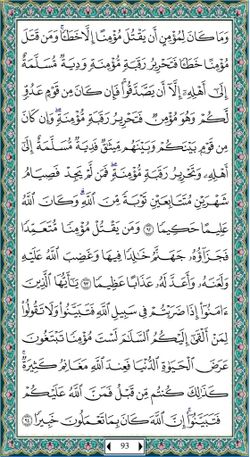 وَمَا كَانَ لِمُؤْمِنٍ أَن يَقْتُلَ مُؤْمِنًا إِلَّا خَطَـًٔا ۚ وَمَن قَتَلَ
مُؤْمِنًا خَطَـًٔا فَتَحْرِيرُ رَقَبَةٍ مُّؤْمِنَةٍ وَدِيَةٌ مُّسَلَّمَةٌ
إِلَىٰٓ أَهْلِهِۦٓ إِلَّآ أَن يَصَّدَّقُوا۟ ۚ فَإِن كَانَ مِن قَوْمٍ عَدُوٍّ
لَّكُمْ وَهُوَ مُؤْمِنٌ فَتَحْرِيرُ رَقَبَةٍ مُّؤْمِنَةٍ ۖ وَإِن كَانَ
مِن قَوْمٍۭ بَيْنَكُمْ وَبَيْنَهُم مِّيثَـٰقٌ فَدِيَةٌ مُّسَلَّمَةٌ إِلَىٰٓ
أَهْلِهِۦ وَتَحْرِيرُ رَقَبَةٍ مُّؤْمِنَةٍ ۖ فَمَن لَّمْ يَجِدْ فَصِيَامُ
شَهْرَيْنِ مُتَتَابِعَيْنِ تَوْبَةً مِّنَ ٱللَّهِ ۗ وَكَانَ ٱللَّهُ
عَلِيمًا حَكِيمًا ٩٢ وَمَن يَقْتُلْ مُؤْمِنًا مُّتَعَمِّدًا
فَجَزَآؤُهُۥ جَهَنَّمُ خَـٰلِدًا فِيهَا وَغَضِبَ ٱللَّهُ عَلَيْهِ
وَلَعَنَهُۥ وَأَعَدَّ لَهُۥ عَذَابًا عَظِيمًا ٩٣ يَـٰٓأَيُّهَا ٱلَّذِينَ
ءَامَنُوٓا۟ إِذَا ضَرَبْتُمْ فِى سَبِيلِ ٱللَّهِ فَتَبَيَّنُوا۟ وَلَا تَقُولُوا۟
لِمَنْ أَلْقَىٰٓ إِلَيْكُمُ ٱلسَّلَـٰمَ لَسْتَ مُؤْمِنًا تَبْتَغُونَ
عَرَضَ ٱلْحَيَوٰةِ ٱلدُّنْيَا فَعِندَ ٱللَّهِ مَغَانِمُ كَثِيرَةٌ ۚ
كَذَٰلِكَ كُنتُم مِّن قَبْلُ فَمَنَّ ٱللَّهُ عَلَيْكُمْ
فَتَبَيَّنُوٓا۟ ۚ إِنَّ ٱللَّهَ كَانَ بِمَا تَعْمَلُونَ خَبِيرًا ٩٤
93